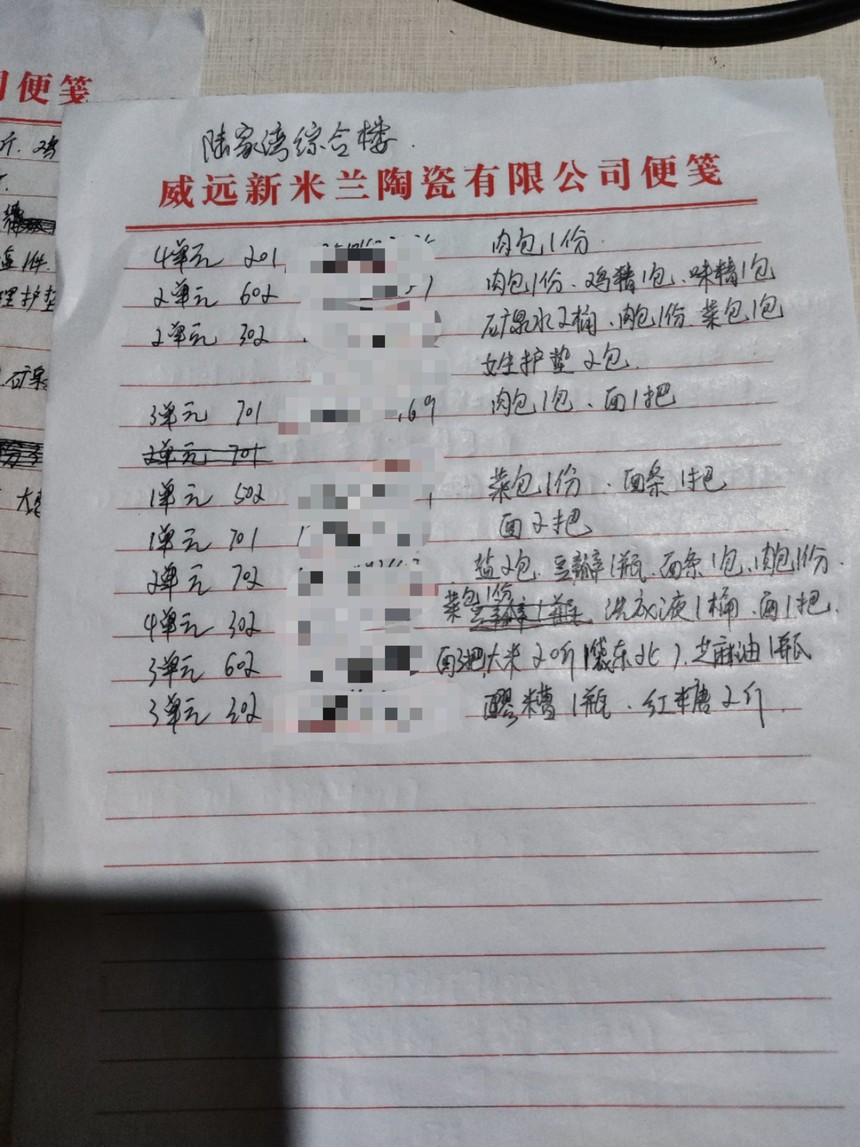 司便笺
斤.鸡
陆家湾综合楼.
威远新米兰陶瓷有限公司便笺
4单元 201 肉包1份.
2单元 602 肉包1份、鸡精1包、味精1包
2单元 302 矿泉水2桶、肉包1份、菜包1包
女生护垫2包.
3单元 701 .69 肉包1包、面1把
2单元 701
1单元 502 菜包1份、面条1把
1单元 701 面2把
2单元 702 盐2包、豆瓣1瓶、面条1包、肉包1份.
4单元 302 菜包1份 豆瓣1瓶、洗衣液1桶、面1把.
3单元 602 面3把、大米20斤1袋东北)、芝麻油1瓶
3单元 202 醪糟1瓶、红糖2斤.